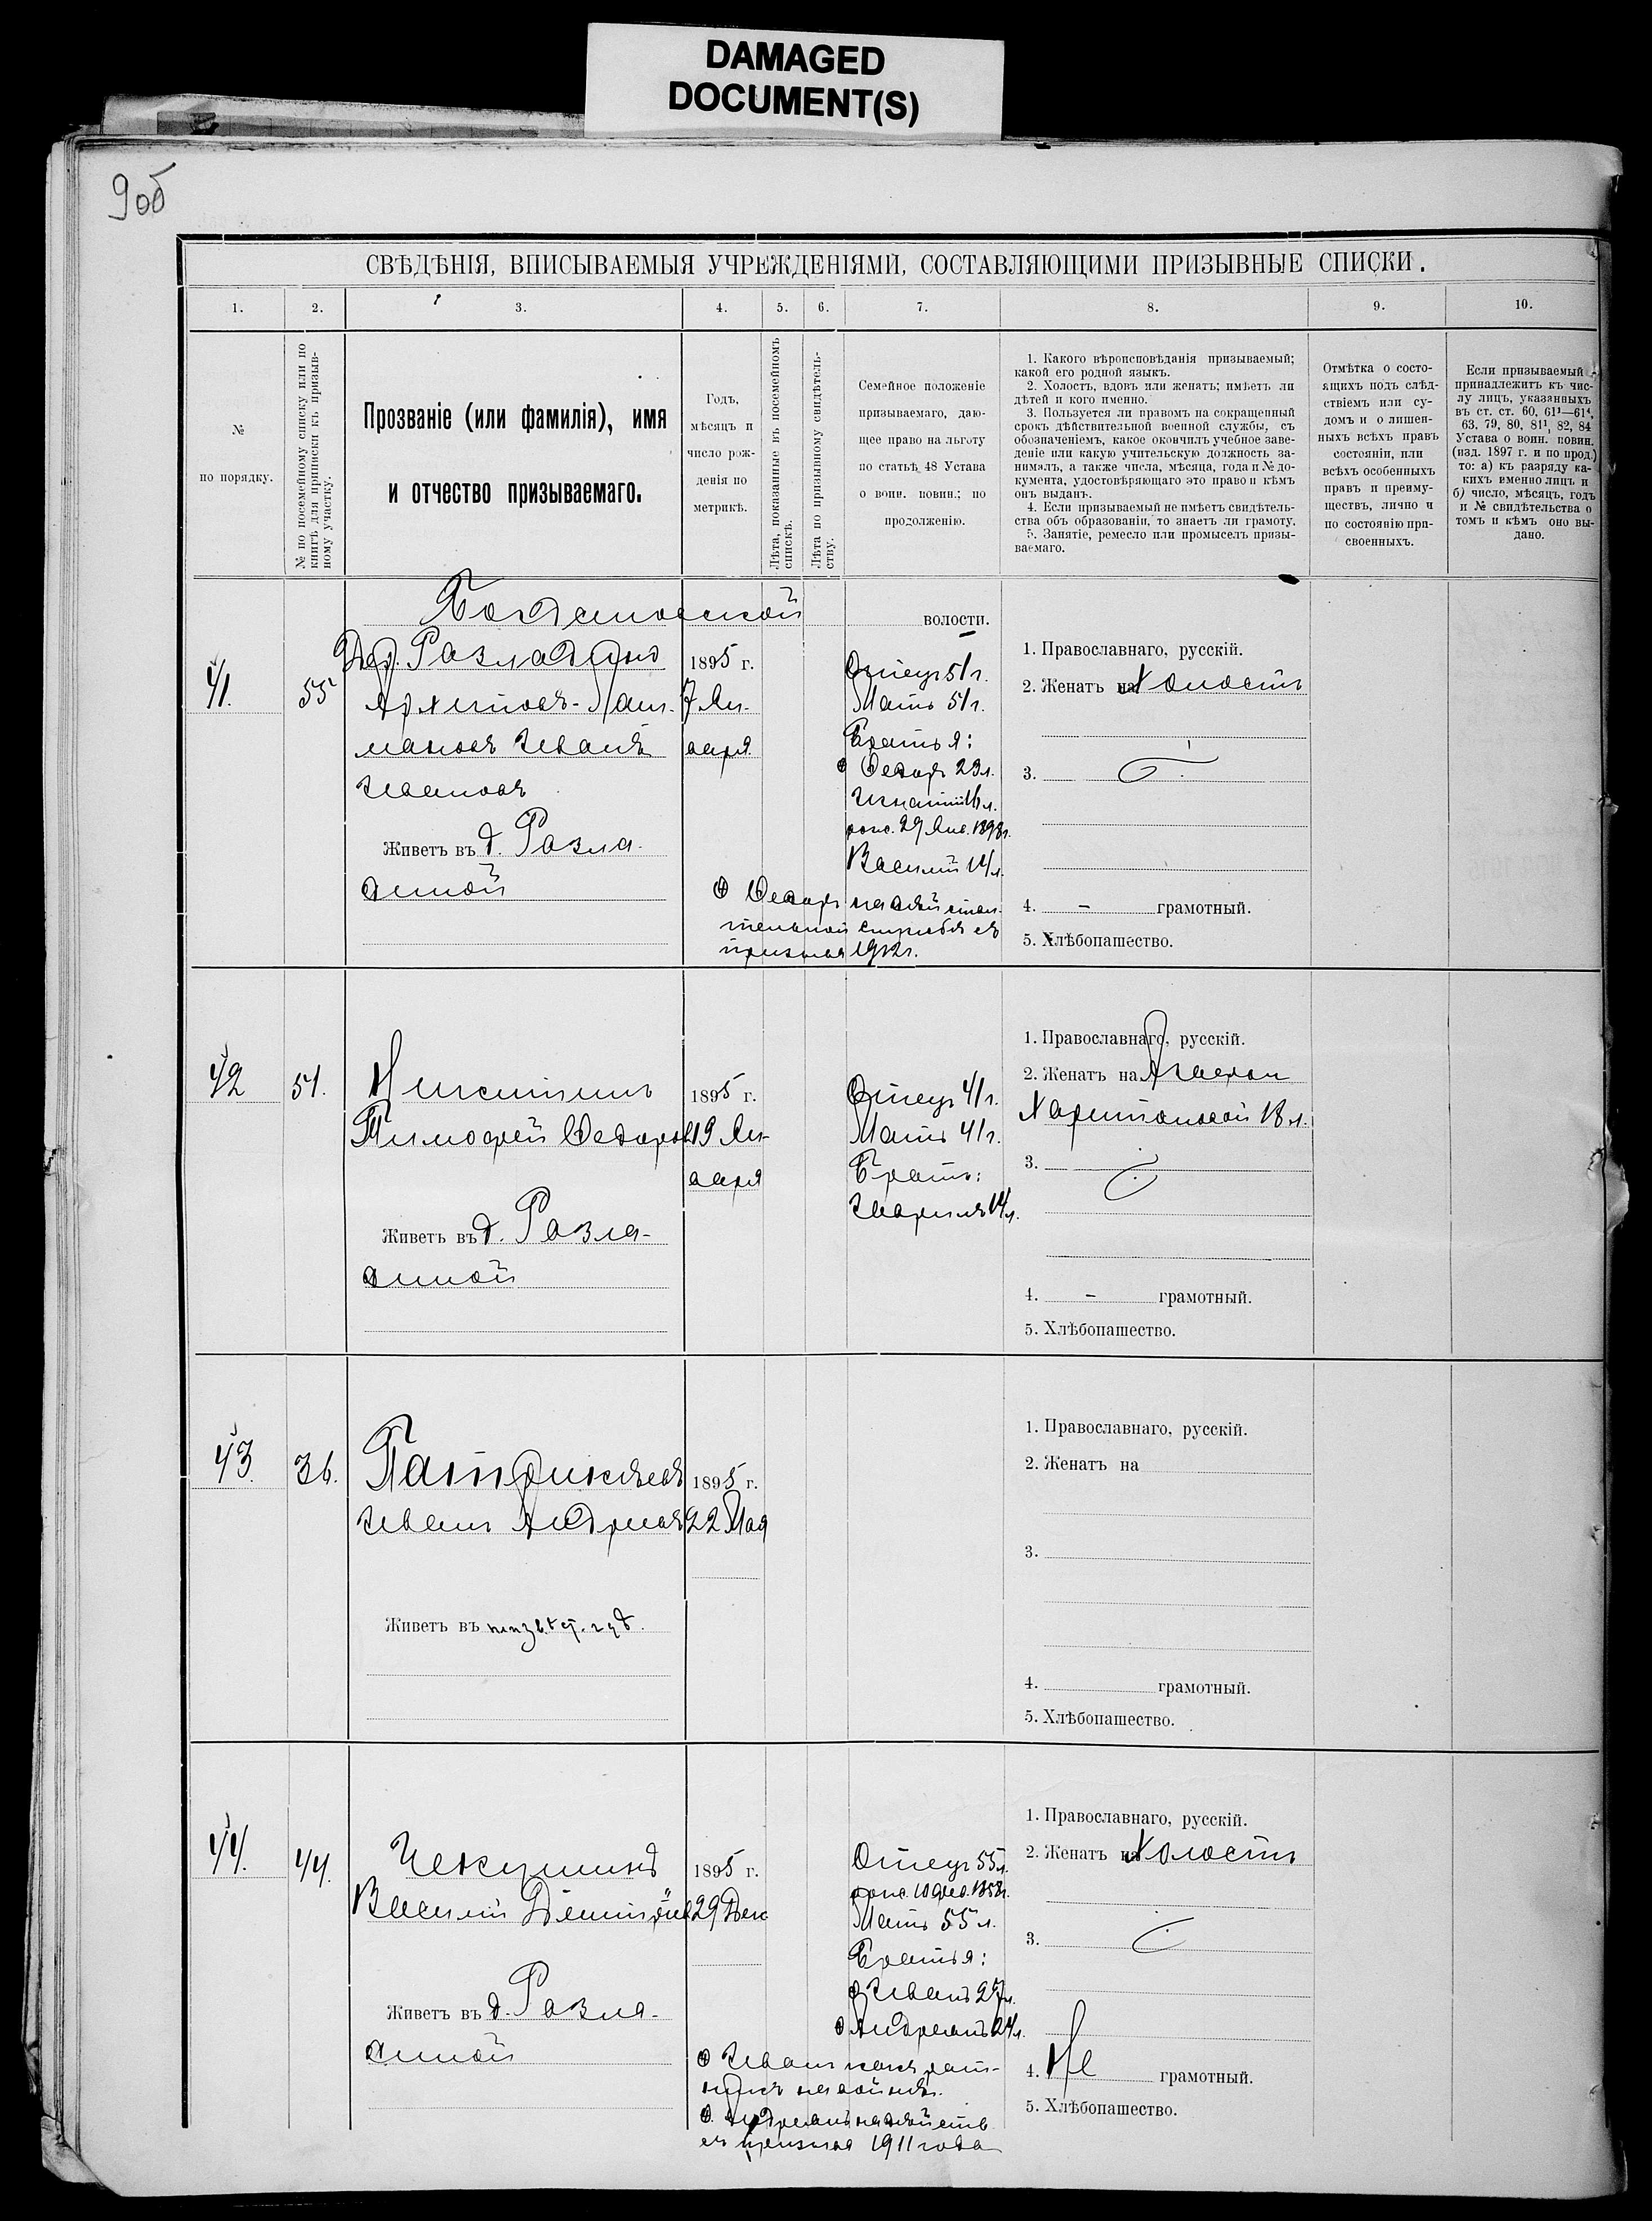 DAMAGED
DOCUMENT(S)
9 об
СВѢДѢНІЯ, ВПИСЫВАЕМЫЯ УЧРЕЖДЕНІЯМИ, СОСТАВЛЯЮЩИМИ ПРИЗЫВНЫЕ СПИСКИ.
1. 2. 3. 4. 5. 6. 7. 8. 9. 10.
№
по порядку.
№ по посемейному списку или по
книгѣ для приписки къ призыв-
ному участку.
Прозваніе (или фамилія), имя
и отчество призываемаго.
Годъ,
мѣсяцъ и
число рож-
денія по
метрикѣ.
Лѣта, показанные въ посемейномъ
спискѣ.
Лѣта по призывному свидѣтель-
ству.
Семейное положеніе
призываемаго, даю-
щее право на льготу
по статьѣ 48 Устава
о воин. повин.; по
продолженію.
1. Какого вѣроисповѣданія призываемый;
какой его родной языкъ.
2. Холостъ, вдовъ или женатъ; имѣетъ ли
дѣтей и кого именно.
3. Пользуется ли правомъ на сокращенный
срокъ дѣйствительной военной службы, съ
обозначеніемъ, какое окончилъ учебное заве-
деніе или какую учительскую должность за-
нималъ, а также числа, мѣсяца, года и № до-
кумента, удостовѣряющаго это право и кѣмъ
онъ выданъ.
4. Если призываемый не имѣетъ свидѣтель-
ства объ образованіи, то знаетъ ли грамоту.
5. Занятіе, ремесло или промыселъ призы-
ваемаго.
Отмѣтка о состо-
ящихъ подъ слѣд-
ствіемъ или су-
домъ и о лишен-
ныхъ всѣхъ правъ
состоянія, или
всѣхъ особенныхъ
правъ и преиму-
ществъ, лично и
по состоянію при-
своенныхъ.
Если призываемый
принадлежитъ къ чис-
лу лицъ, указанныхъ
въ ст. ст. 60, 61¹—61⁴,
63, 79, 80, 81¹, 82, 84
Устава о воин. повин.
(изд. 1897 г. и по прод.)
то: а) къ разряду ка-
кихъ именно лицъ и
б) число, мѣсяцъ, годъ
и № свидѣтельства о
томъ и кѣмъ оно вы-
дано.
волости.
41. 55
Дер.
Архиповъ-
Иванъ
Ивановъ
Живетъ въ д. Разла-
дной
1895 г.
7 Ян-
варя
Отецъ 51 г.
Мать 51 г.
Братья:
Ѳедоръ 23 л.
Игнатій 16 л.
рож. 29 Янв. 1898 г.
Василій 14 л.
Ѳедоръ на дѣйстви-
тельной службѣ съ
призыва 1912 г.
1. Православнаго, русскій.
2. Женатъ на Холостъ
3.
4. – грамотный.
5. Хлѣбопашество.
42 51.
Никитинъ
Тимофей Ѳедоровъ
Живетъ въ д. Разла-
дной
1895 г.
19 Ян-
варя
Отецъ 41 г.
Мать 41 г.
Братъ:
14 л.
1. Православнаго, русскій.
2. Женатъ на
Харитоновой 18 л.
3.
4. – грамотный.
5. Хлѣбопашество.
43. 36.
Патрикѣевъ
Иванъ
Живетъ въ
1895 г.
22 Мая
1. Православнаго, русскій.
2. Женатъ на
3.
4. грамотный.
5. Хлѣбопашество.
44. 44.
Чекушинъ
Василій
Живетъ въ д. Разла-
дной
1895 г.
29 Дек
Отецъ 55 л.
рож. 10 Дек. 1858 г.
Мать 55 л.
Братья:
Иванъ 27 л.
Андреянъ 24 л.
Иванъ какъ рат-
никъ на войнѣ.
Андреянъ на дѣйств.
съ призыва 1911 года
1. Православнаго, русскій.
2. Женатъ на Холостъ
3.
4. Не грамотный.
5. Хлѣбопашество.